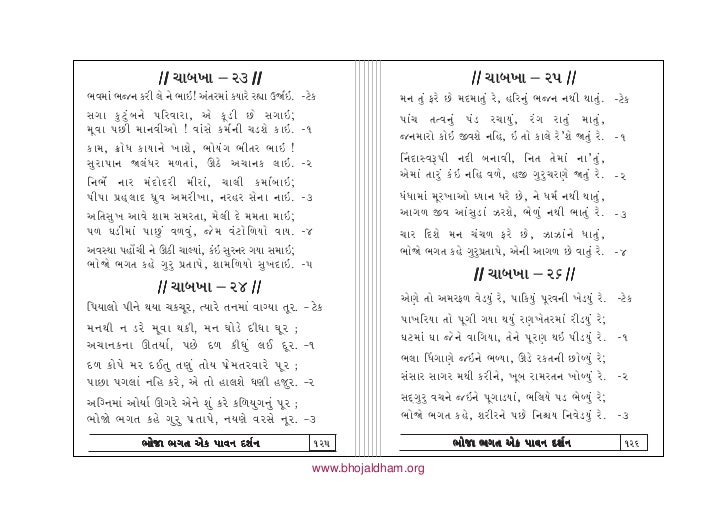 // ચાબખા – ૨૩ //
ભવમાં ભજન કરી લે ને ભાઇ! અંતરમાં ક્યારે રહ્યા ઉર્જાઇ. -ટેક
સગા કુટુંબને પરિવારા, એ કૂડી છે સગાઇ;
મૂવા પછી માનવીઓ ! વાંસે કર્મની ચડશે કાઇ. -૧
કામ, ક્રોધ કાયાને ખાશે, ભોયંગ ભીતર ભાઇ !
સુરાપાન જાલંધર મળતાં, ઊઠે અચાનક લાઇ. -૨
નિર્ભે નાર મંદોદરી મીરાં, ચાલી કર્માબાઇ;
પીપા પ્રહલાદ ધ્રુવ અમરીખા, નરહર સેના નાઇ. -૩
અતિસુખ આવે શામ સમરતા, મેલી દે મમતા માઇ;
પળ ઘડીમાં પાછું વળવું, જેમ વંટોળિયો વાય. -૪
અવસ્થા પહોંચી ને ઊઠી ચાલ્યા, કંઇ સુરનર ગયા સમાઇ;
ભોજો ભગત કહે ગુરુ પ્રતાપે, શામળિયો સુખદાઇ. -૫
// ચાબખા – ૨૪ //
પિયાલો પીને થયા ચકચૂર, ત્યારે તનમાં વાગ્યા તૂર. – ટેક
મનથી ન ડરે મૂવા થકી, મન ઘોડે દીધા ઘૂર ;
અચાનકના ઊતર્યા, પછે દળ કીધું લઈ દૂર. -૧
દળ કોપે મર દઈતુ તણું તોય પ્રેમતરવારે પૂર ;
પાછા પગલાં નહિ ભરે, એ તો હાલશે ધણી હજુર. -૨
અગ્નિમાં ઓર્યા ઊગરે એને શું કરે કળિયુગનું પૂર ;
ભોજો ભગત કહે ગુરુ પ્રતાપે, નયણે વરસે નૂર. -૩
ભોજા ભગત એક પાવન દર્શન ૧૨૫
// ચાબખા – ૨૫ //
મન તું ફરે છે મદમાતું રે, હરિનું ભજન નથી થાતું. -ટેક
પાંચ તત્વનું પંડ રચાયું, રંગ રાતું માતું,
જનમારો કોઈ જીવશે નહિ, ઇ તો કાલે રે'શે જાતું રે. -૧
નિંદાસ્વરૂપી નદી બનાવી, નિત તેમાં ના'તું,
એમાં તારું કંઇ નહિ વળે, હજી ગુરુચરણે જાતું રે. -૨
ધંધામાં મૂરખાઓ ધ્યાન ધરે છે, ને ધર્મ નથી થાતું,
આગળ જીવ આંસુડાં ઝરશે, ભેળું નથી ભાતું રે. -૩
ચાર દિશે મન ચંચળ ફરે છે, ઝાઝાંને ધાતું,
ભોજો ભગત કહે ગુરુપ્રતાપે, એની આગળ છે વાતું રે. -૪
// ચાબખા – ૨૬ //
એણે તો અમરફળ વેડયું રે, પાકિયું પૂરવની ખેડયું રે. -ટેક
પાખરિયા તો પૂગી ગયા થયું રણખેતરમાં રીડયું રે;
ઘટમાં ઘા જેને વાગિયા, તેને પૂરણ થઇ પીડયું રે. -૧
ભલા ધિંગાણે જઇને ભળ્યા, ઊડે રકતની છોળ્યું રે;
સંસાર સાગર મથી કરીને, ખૂબ રામરતન ખોળ્યું રે. -૨
સદ્ગુરુ વચને જઇને પૂગાડયાં, ભલિયે પડ ભેળ્યું રે;
ભોજો ભગત કહે, શરીરને પછે નિશ્ચય નિવેડયું રે. -૩
ભોજા ભગત એક પાવન દર્શન ૧૨૬
www.bhojaldham.org